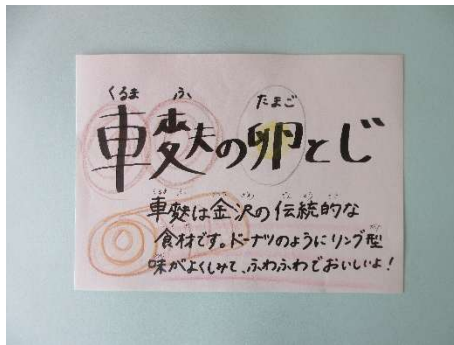 くるま ふ たまご
車麩の卵とじ
車麩は金沢の伝統的な
食材です。ドーナツのようにリング型
味がよくしみて、ふわふわでおいしいよ!